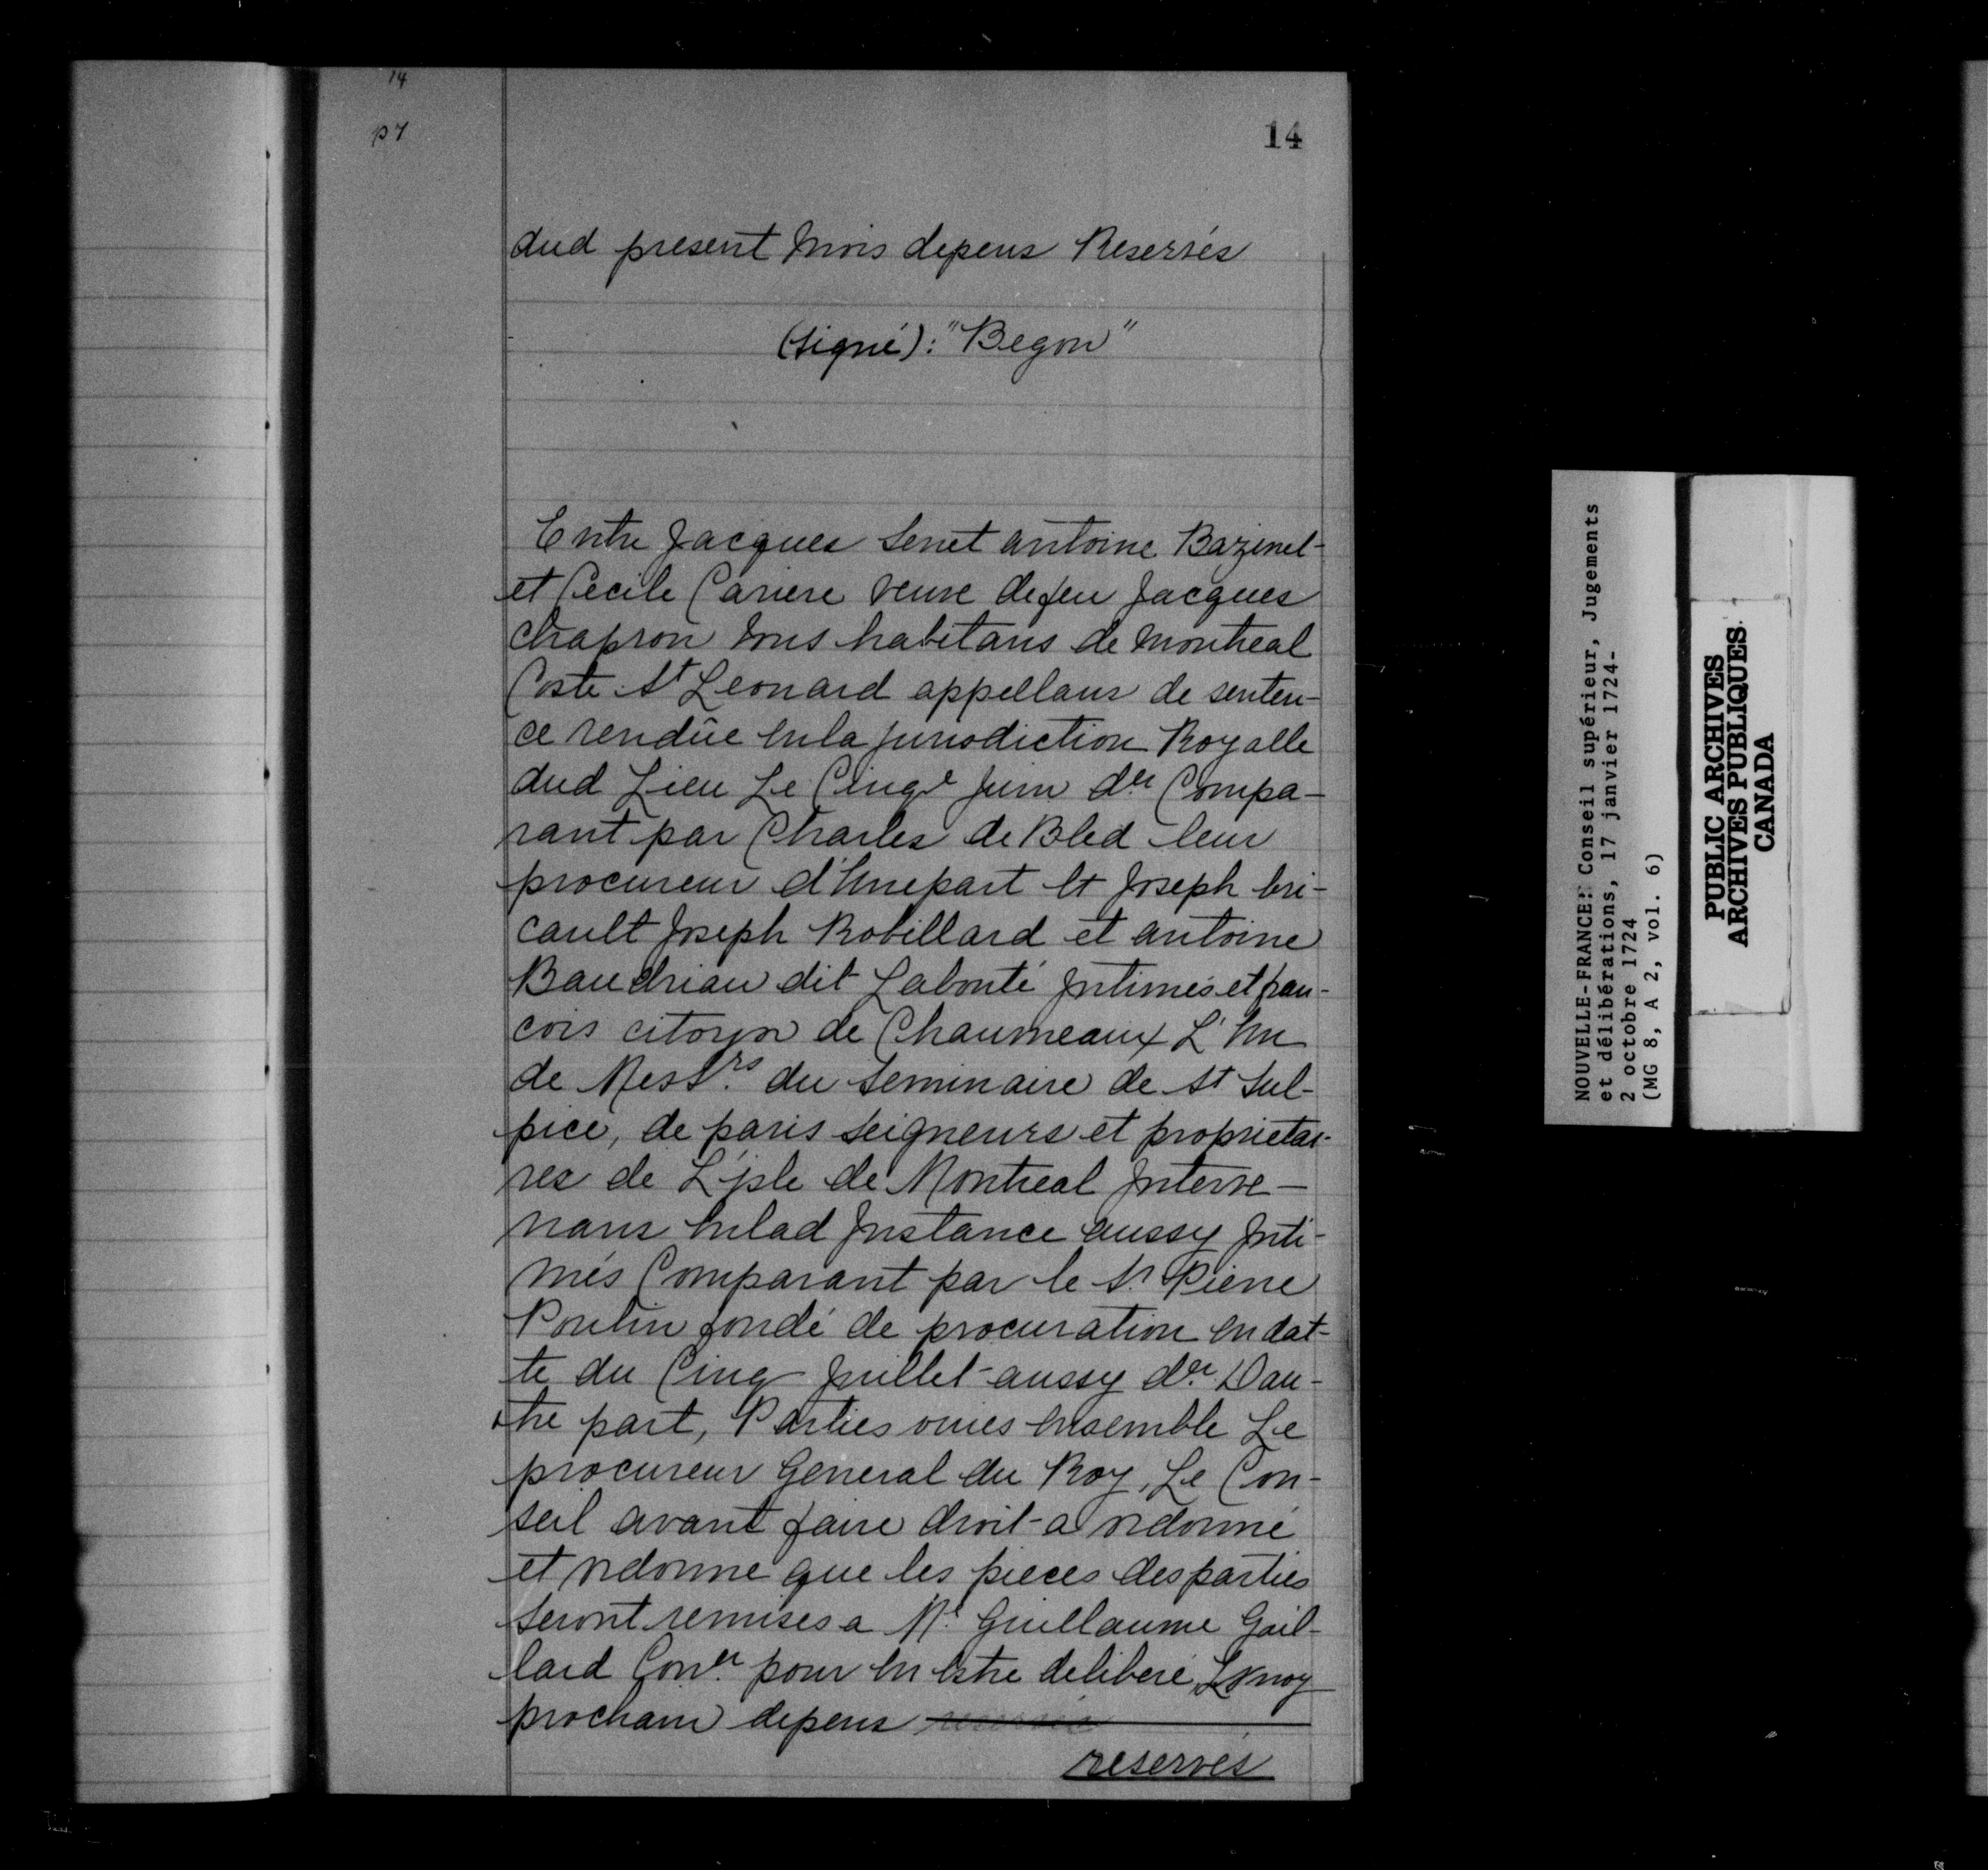 14
p 7
14
dud present Mois depens Reservés
(signé): "Begon"
Entre Jacques Senet antoine Bazinet
et Cecile Cariere veuve defeu Jacques
Chapron tous habitans de Montreal
Coste St Leonard appellans de senten-
ce rendüe enla jurisdiction Royalle
dud Lieu Le Cinqe juin der Compa-
rant par Charles de Bled leur
procureur d'Unepart et Joseph bri-
cault Joseph Robillard et antoine
Baudriau dit Labonté Jntimés et fran-
cois citoyn de Chaumeaux L'Un
de Messrs du Seminaire de St Sul-
pice, de paris Seigneurs et proprietai-
res de L'jsle de Montreal Jnterve-
nans enlad Jnstance aussy Jnti-
més Comparant par le Sr Pierre
Poulin fondé de procuration en dat-
te du Cinq Juillet aussy der Dau-
tre part, Parties ouies ensemble Le
procureur General du Roy, Le Con-
seil avant faire droit a ordonné
et ordonne que les pieces desparties
seront remises a Me Guillaume Gail-
lard Coner pour en estre deliberé,
prochain depens reservés
reservés
NOUVELLE-FRANCE: Conseil supérieur, Jugements
et délibérations, 17 janvier 1724-
2 octobre 1724
(MG 8, A 2, vol. 6)
PUBLIC ARCHIVES
ARCHIVES PUBLIQUES
CANADA